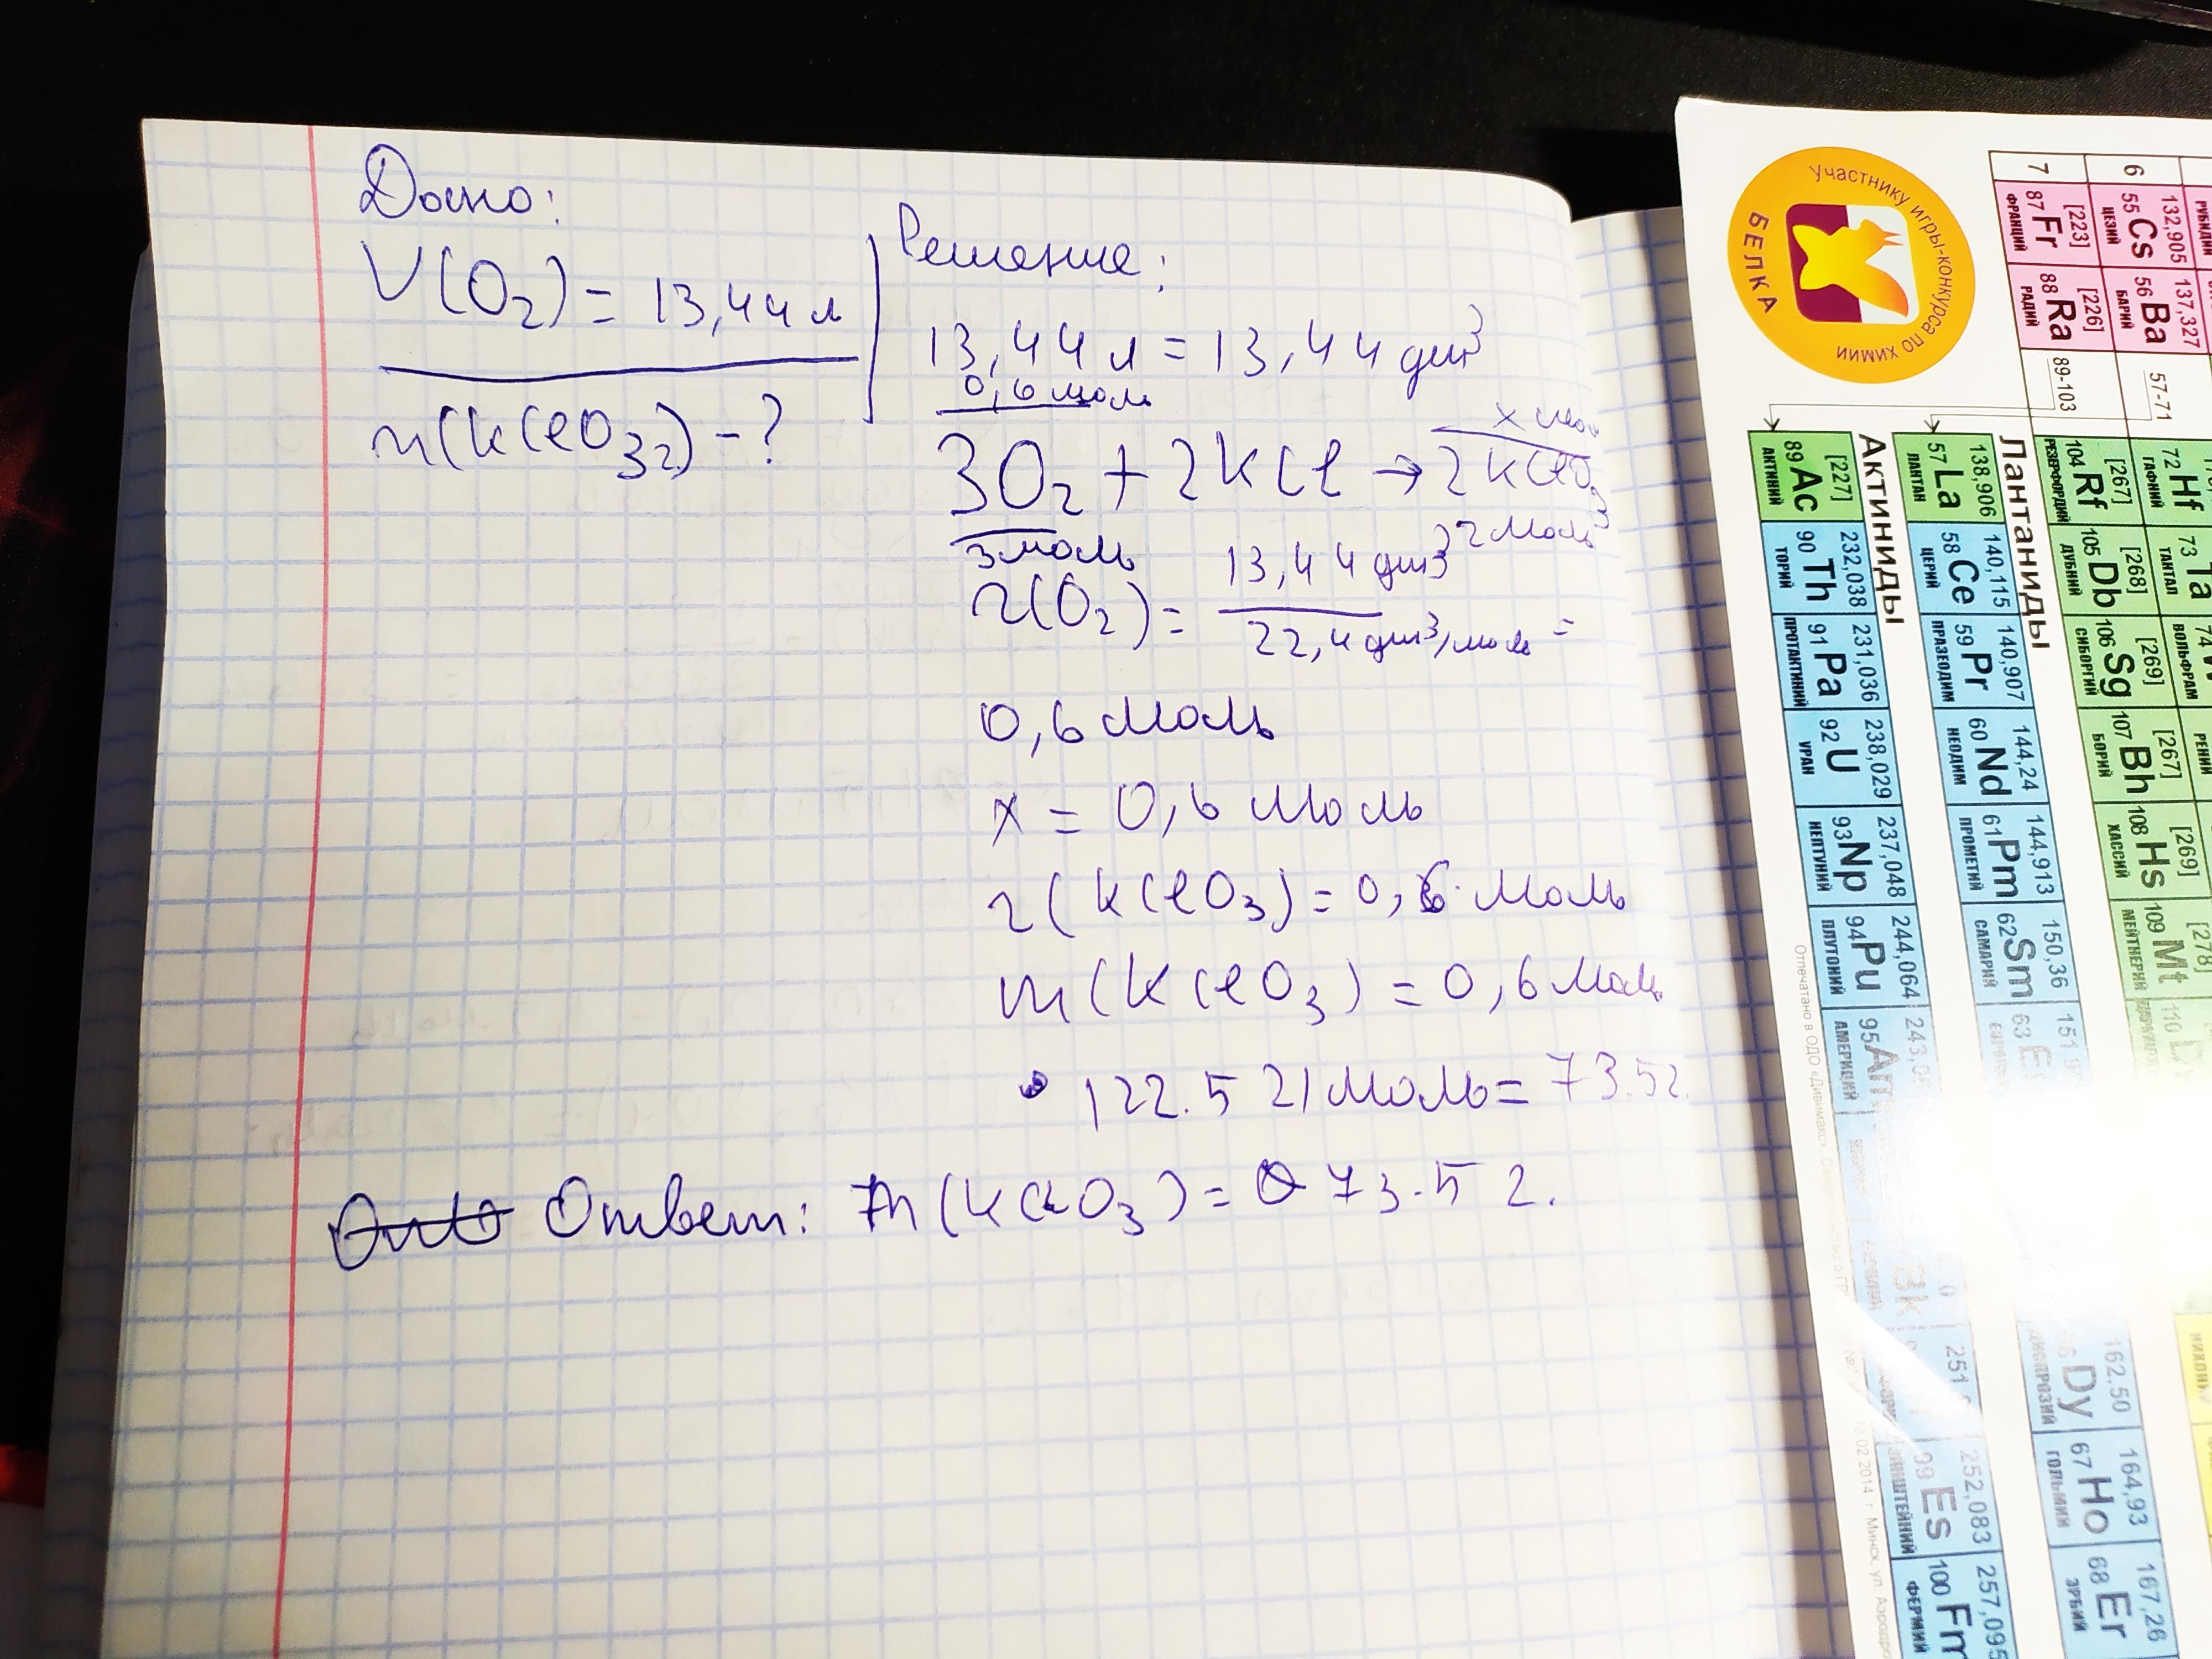 Дано:
V(O2) = 13,44 л
m(KClO3) - ?
Решение:
13,44 л = 13,44 дм³
0,6 моль
x моль
3O2 + 2KCl → 2KClO3
3 моль
2 моль
n(O2) = 13,44 дм³ / 22,4 дм³/моль =
0,6 моль
x = 0,6 моль
n(KClO3) = 0,6 моль
m(KClO3) = 0,6 моль
· 122.5 г/моль = 73.5 г.
Ответ: m(KClO3) = 73.5 г.
Участнику игры-конкурса по химии
БЕЛКА
7
[223]
87 Fr
ФРАНЦИЙ
[226]
88 Ra
РАДИЙ
89-103
[267]
104 Rf
РЕЗЕРФОРДИЙ
[268]
105 Db
ДУБНИЙ
[269]
106 Sg
СИБОРГИЙ
[267]
107 Bh
БОРИЙ
[269]
108 Hs
ХАССИЙ
[278]
109 Mt
МЕЙТНЕРИЙ
110
6
132,905
55 Cs
ЦЕЗИЙ
137,327
56 Ba
БАРИЙ
57-71
72 Hf
ГАФНИЙ
73 Ta
ТАНТАЛ
74
ВОЛЬФРАМ
РЕНИЙ
Лантаниды
138,906
57 La
ЛАНТАН
140,115
58 Ce
ЦЕРИЙ
140,907
59 Pr
ПРАЗЕОДИМ
144,24
60 Nd
НЕОДИМ
144,913
61 Pm
ПРОМЕТИЙ
150,36
62 Sm
САМАРИЙ
63
162.50
Dy
164,93
67 Ho
ГОЛЬМИЙ
167,26
68 Er
ЭРБИЙ
Актиниды
[227]
89 Ac
АКТИНИЙ
232,038
90 Th
ТОРИЙ
231,036
91 Pa
ПРОТАКТИНИЙ
238,029
92 U
УРАН
237,048
93 Np
НЕПТУНИЙ
244,064
94 Pu
ПЛУТОНИЙ
95 Am
АМЕРИЦИЙ
Bk
252,083
99 Es
ЭЙНШТЕЙНИЙ
257,095
100 Fm
ФЕРМИЙ
Отпечатано в ОДО «Дивимакс»